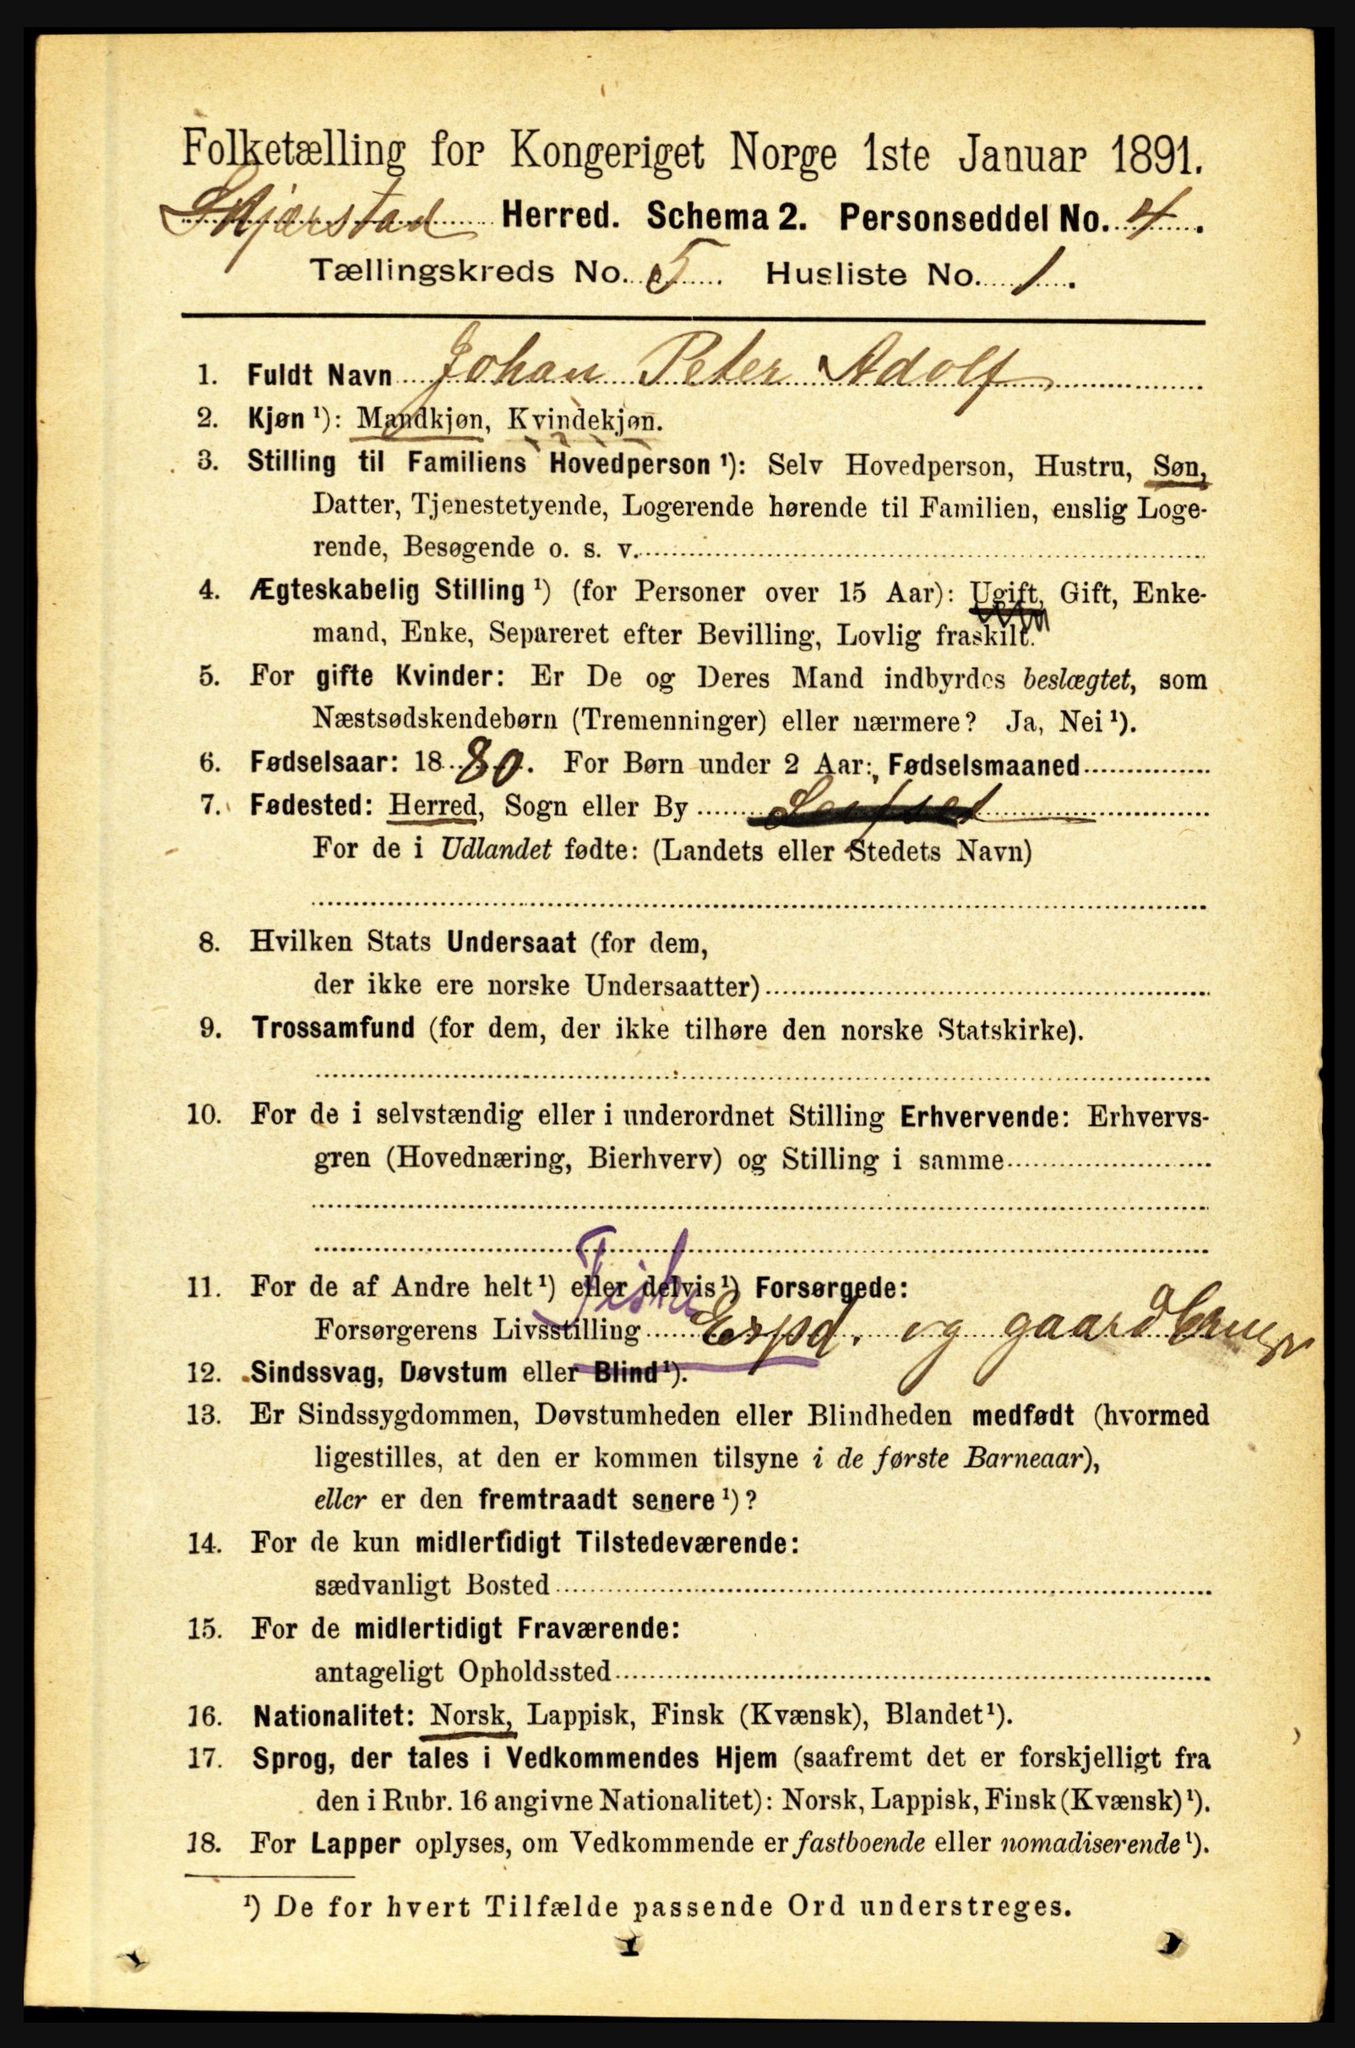 Folketælling for Kongeriget Norge 1ste Januar 1891.
Skjærstad Herred. Schema 2. Personseddel No. 4.
Tællingskreds No. 5. Husliste No. 1.
1. Fuldt Navn Johan Peter Adolf
2. Kjøn ¹): Mandkjøn, Kvindekjøn.
3. Stilling til Familiens Hovedperson ¹): Selv Hovedperson, Hustru, Søn,
Datter, Tjenestetyende, Logerende hørende til Familien, enslig Loge-
rende, Besøgende o. s. v.
4. Ægteskabelig Stilling ¹) (for Personer over 15 Aar): Ugift, Gift, Enke-
mand, Enke, Separeret efter Bevilling, Lovlig fraskilt.
5. For gifte Kvinder: Er De og Deres Mand indbyrdes beslægtet, som
Næstsødskendebørn (Tremenninger) eller nærmere? Ja, Nei ¹).
6. Fødselsaar: 1880. For Børn under 2 Aar: Fødselsmaaned
7. Fødested: Herred, Sogn eller By
For de i Udlandet fødte: (Landets eller Stedets Navn)
8. Hvilken Stats Undersaat (for dem,
der ikke ere norske Undersaatter)
9. Trossamfund (for dem, der ikke tilhøre den norske Statskirke).
10. For de i selvstændig eller i underordnet Stilling Erhvervende: Erhvervs-
gren (Hovednæring, Bierhverv) og Stilling i samme
11. For de af Andre helt ¹) eller delvis ¹) Forsørgede:
Forsørgerens Livsstilling Expd. og gaardbruger
12. Sindssvag, Døvstum eller Blind ¹).
13. Er Sindssygdommen, Døvstumheden eller Blindheden medfødt (hvormed
ligestilles, at den er kommen tilsyne i de første Barneaar),
eller er den fremtraadt senere ¹)?
14. For de kun midlertidigt Tilstedeværende:
sædvanligt Bosted
15. For de midlertidigt Fraværende:
antageligt Opholdssted
16. Nationalitet: Norsk, Lappisk, Finsk (Kvænsk), Blandet ¹).
17. Sprog, der tales i Vedkommendes Hjem (saafremt det er forskjelligt fra
den i Rubr. 16 angivne Nationalitet): Norsk, Lappisk, Finsk (Kvænsk) ¹).
18. For Lapper oplyses, om Vedkommende er fastboende eller nomadiserende ¹).
¹) De for hvert Tilfælde passende Ord understreges.